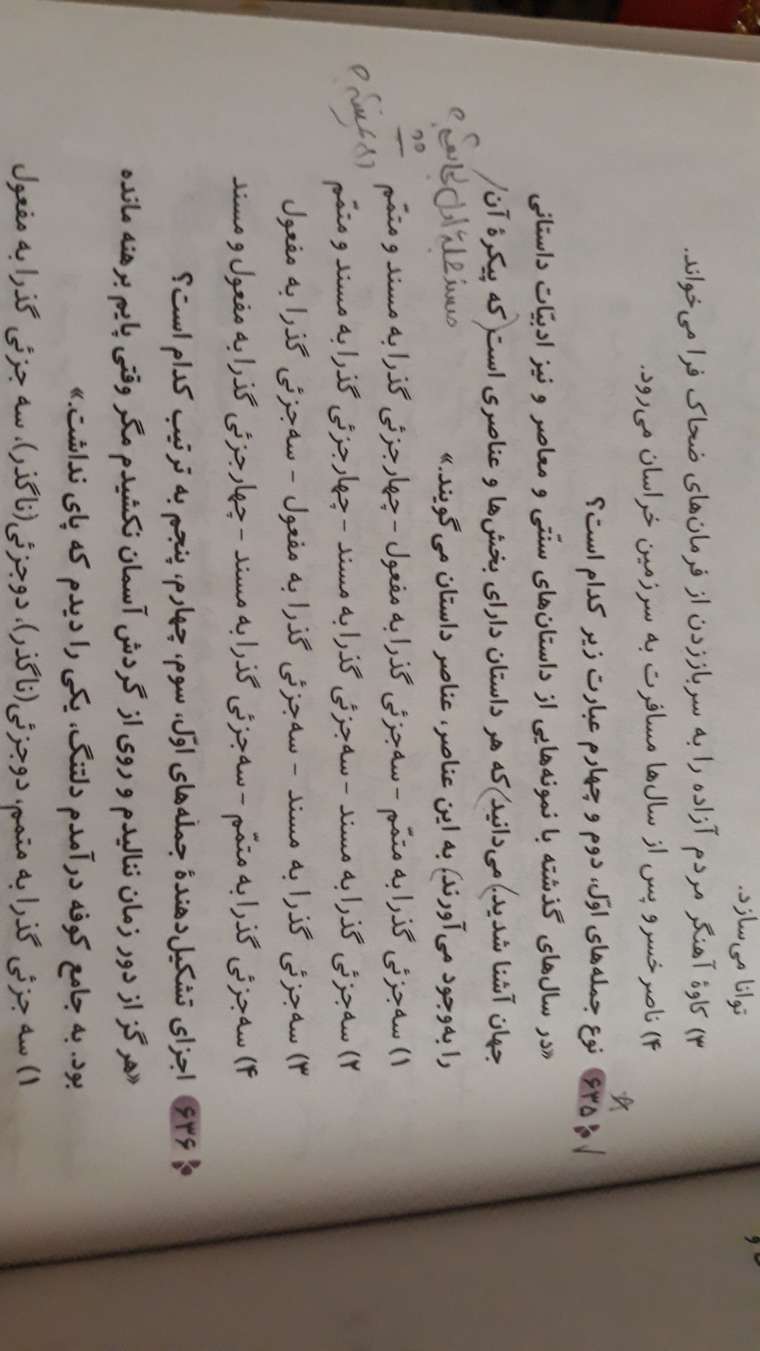 توانا می‌سازد.
۳) کاوۀ آهنگر مردم آزاده را به سر باززدن از فرمان‌های ضحاک فرا می‌خواند.
۴) ناصرخسرو پس از سال‌ها مسافرت به سرزمین خراسان می‌رود.
۶۳۵ نوع جمله‌های اوّل، دوم و چهارم عبارت زیر کدام است؟
«در سال‌های گذشته با نمونه‌هایی از داستان‌های سنّتی و معاصر و نیز ادبیّات داستانی
جهان آشنا شدید. می‌دانید که هر داستان دارای بخش‌ها و عناصری است که پیکرۀ آن
را به‌وجود می‌آورند. به این عناصر، عناصر داستان می‌گویند.»
۱) سه‌جزئی گذرا به مسند و متمّم - سه‌جزئی گذرا به مفعول - چهارجزئی گذرا به مسند و متمّم
۲) سه‌جزئی گذرا به مسند - سه‌جزئی گذرا به مسند - چهارجزئی گذرا به مسند و متمّم
۳) سه‌جزئی گذرا به مسند - سه‌جزئی گذرا به مفعول - سه‌جزئی گذرا به مفعول
۴) سه‌جزئی گذرا به متمّم - سه‌جزئی گذرا به مسند - چهارجزئی گذرا به مفعول و مسند
۶۳۶ اجزای تشکیل‌دهندۀ جمله‌های اوّل، سوم، چهارم، پنجم به ترتیب کدام است؟
«هرگز از دور زمان ننالیدم و روی از گردش آسمان نکشیدم مگر وقتی پایم برهنه مانده
بود. به جامع کوفه درآمدم دلتنگ، یکی را دیدم که پای نداشت.»
۱) سه جزئی گذرا به متمم، دوجزئی (ناگذر)، دوجزئی (ناگذر)، سه جزئی گذرا به مفعول